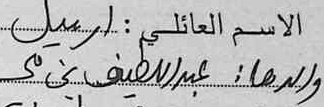 الاسم العائلي: ارسيل
والدها: عبد اللطيف بن